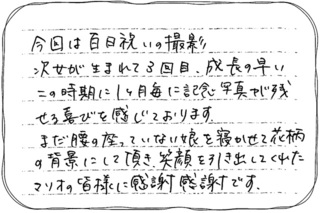 今回は百日祝いの撮影
次女が生まれて3回目、成長の早い
この時期に1ヶ月毎に記念写真で残
せる喜びを感じております。
まだ腰の座っていない娘を寝かせて花柄
の背景にして頂き、笑顔を引き出してくれた
マリオの皆様に感謝感謝です。